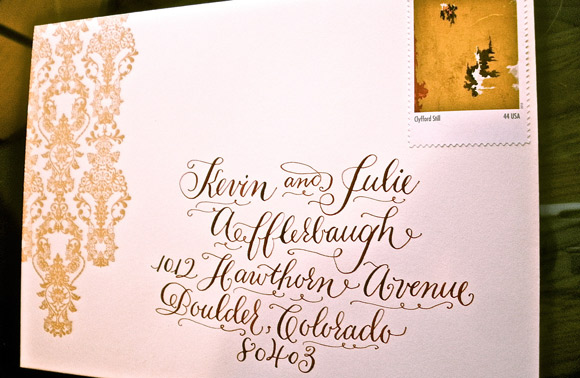 Clyfford Still 44 USA
Kevin and Julie
Aefflerbaugh
1012 Hawthorn Avenue
Boulder, Colorado
80403